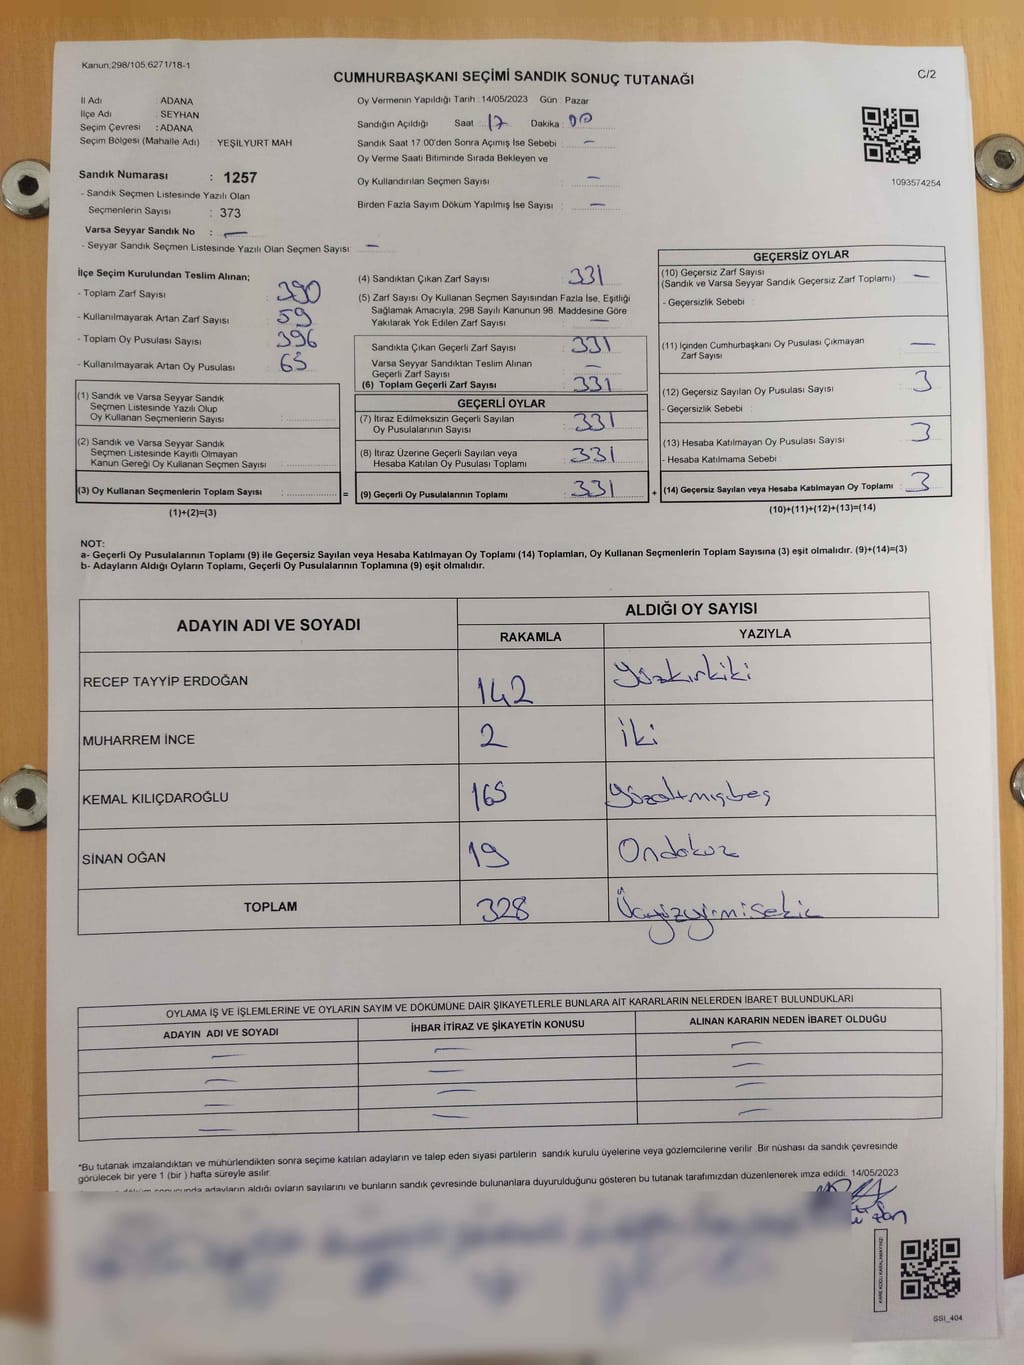 Kanun;298/105,6271/18-1
CUMHURBAŞKANI SEÇİMİ SANDIK SONUÇ TUTANAĞI
C/2
İl Adı : ADANA
İlçe Adı : SEYHAN
Seçim Çevresi : ADANA
Seçim Bölgesi (Mahalle Adı) : YEŞİLYURT MAH
Oy Vermenin Yapıldığı Tarih : 14/05/2023 Gün : Pazar
Sandığın Açıldığı Saat : 17 Dakika : 00
Sandık Saat 17.00'den Sonra Açımış İse Sebebi : —
Oy Verme Saati Bitiminde Sırada Bekleyen ve
Oy Kullandırılan Seçmen Sayısı : —
Birden Fazla Sayım Döküm Yapılmış İse Sayısı : —
1093574254
Sandık Numarası : 1257
- Sandık Seçmen Listesinde Yazılı Olan
Seçmenlerin Sayısı : 373
Varsa Seyyar Sandık No : —
- Seyyar Sandık Seçmen Listesinde Yazılı Olan Seçmen Sayısı: —
İlçe Seçim Kurulundan Teslim Alınan;
- Toplam Zarf Sayısı : 390
- Kullanılmayarak Artan Zarf Sayısı : 59
- Toplam Oy Pusulası Sayısı : 396
- Kullanılmayarak Artan Oy Pusulası : 65
(1) Sandık ve Varsa Seyyar Sandık
Seçmen Listesinde Yazılı Olup
Oy Kullanan Seçmenlerin Sayısı :
(2) Sandık ve Varsa Seyyar Sandık
Seçmen Listesinde Kayıtlı Olmayan
Kanun Gereği Oy Kullanan Seçmen Sayısı :
(3) Oy Kullanan Seçmenlerin Toplam Sayısı : =
(1)+(2)=(3)
(4) Sandıktan Çıkan Zarf Sayısı : 331
(5) Zarf Sayısı Oy Kullanan Seçmen Sayısından Fazla İse, Eşitliği
Sağlamak Amacıyla; 298 Sayılı Kanunun 98. Maddesine Göre
Yakılarak Yok Edilen Zarf Sayısı : —
Sandıkta Çıkan Geçerli Zarf Sayısı : 331
Varsa Seyyar Sandıktan Teslim Alınan
Geçerli Zarf Sayısı : —
(6) Toplam Geçerli Zarf Sayısı : 331
GEÇERLİ OYLAR
(7) İtiraz Edilmeksizin Geçerli Sayılan
Oy Pusulalarının Sayısı : 331
(8) İtiraz Üzerine Geçerli Sayılan veya
Hesaba Katılan Oy Pusulası Toplamı : 331
(9) Geçerli Oy Pusulalarının Toplamı : 331 +
GEÇERSİZ OYLAR
(10) Geçersiz Zarf Sayısı : —
(Sandık ve Varsa Seyyar Sandık Geçersiz Zarf Toplamı)
- Geçersizlik Sebebi :
(11) İçinden Cumhurbaşkanı Oy Pusulası Çıkmayan
Zarf Sayısı : —
(12) Geçersiz Sayılan Oy Pusulası Sayısı : 3
- Geçersizlik Sebebi :
(13) Hesaba Katılmayan Oy Pusulası Sayısı : 3
- Hesaba Katılmama Sebebi :
(14) Geçersiz Sayılan veya Hesaba Katılmayan Oy Toplamı : 3
(10)+(11)+(12)+(13)=(14)
NOT:
a- Geçerli Oy Pusulalarının Toplamı (9) ile Geçersiz Sayılan veya Hesaba Katılmayan Oy Toplamı (14) Toplamları, Oy Kullanan Seçmenlerin Toplam Sayısına (3) eşit olmalıdır. (9)+(14)=(3)
b- Adayların Aldığı Oyların Toplamı, Geçerli Oy Pusulalarının Toplamına (9) eşit olmalıdır.
ADAYIN ADI VE SOYADI
ALDIĞI OY SAYISI
RAKAMLA YAZIYLA
RECEP TAYYİP ERDOĞAN 142 Yüzkırkiki
MUHARREM İNCE 2 İki
KEMAL KILIÇDAROĞLU 165 Yüzaltmışbeş
SİNAN OĞAN 19 Ondokuz
TOPLAM 328 Üçyüzyirmisekiz
OYLAMA İŞ VE İŞLEMLERİNE VE OYLARIN SAYIM VE DÖKÜMÜNE DAİR ŞİKAYETLERLE BUNLARA AİT KARARLARIN NELERDEN İBARET BULUNDUKLARI
ADAYIN ADI VE SOYADI İHBAR İTİRAZ VE ŞİKAYETİN KONUSU ALINAN KARARIN NEDEN İBARET OLDUĞU
— — —
— — —
— — —
— — —
*Bu tutanak imzalandıktan ve mühürlendikten sonra seçime katılan adayların ve talep eden siyasi partilerin sandık kurulu üyelerine veya gözlemcilerine verilir. Bir nüshası da sandık çevresinde
görülecek bir yere 1 (bir ) hafta süreyle asılır.
sonucunda adayların aldığı oyların sayılarını ve bunların sandık çevresinde bulunanlara duyurulduğunu gösteren bu tutanak tarafımızdan düzenlenerek imza edildi. 14/05/2023
KARE KODU KARALAMAYINIZ!
SSI_404